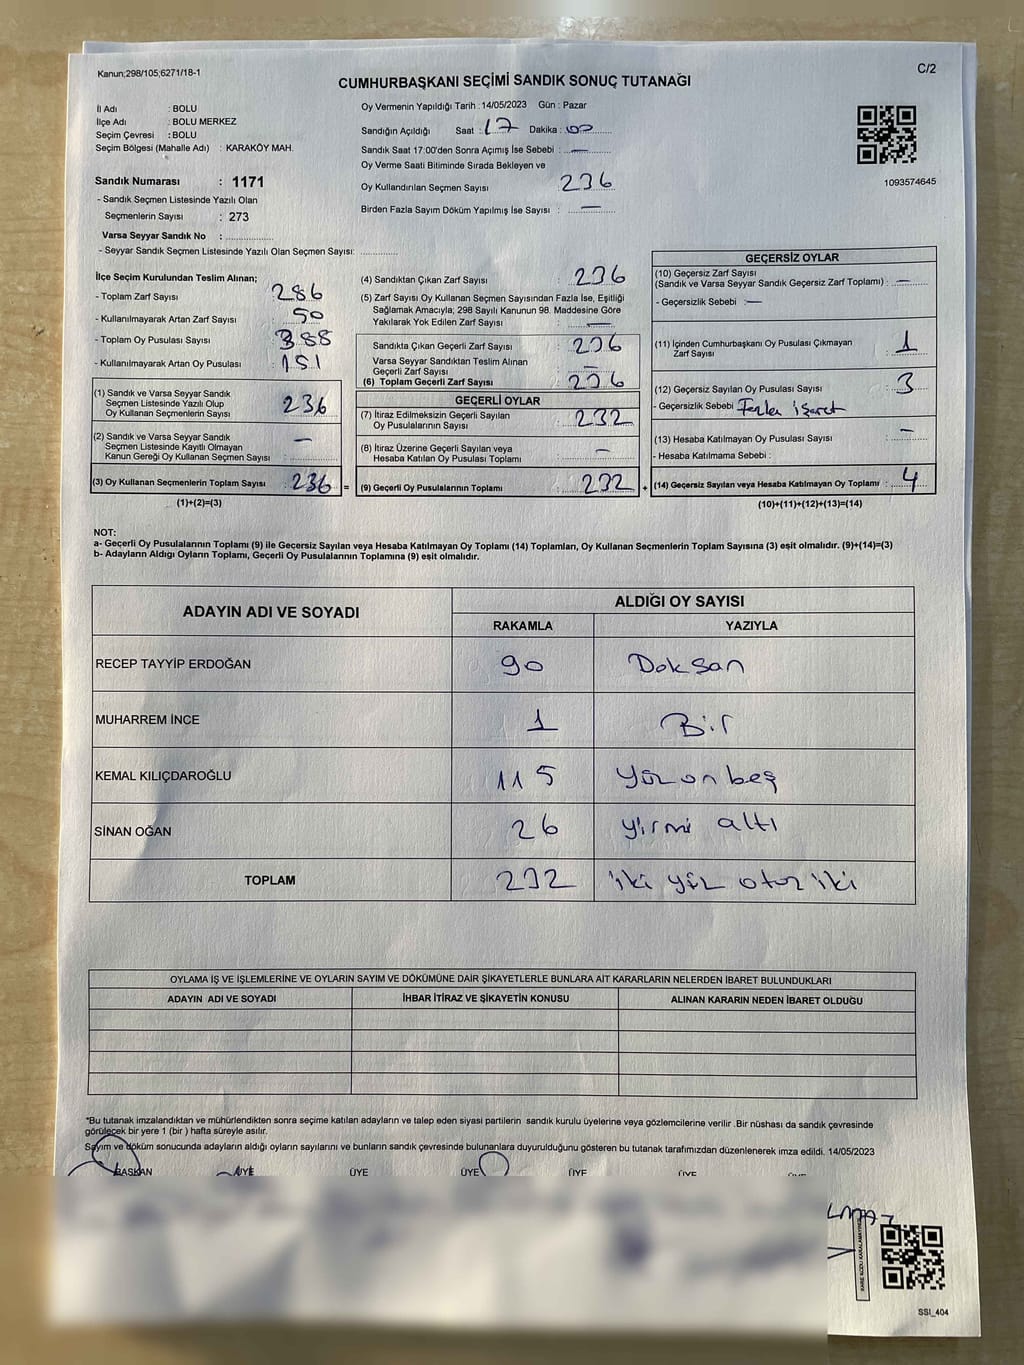 Kanun;298/105;6271/18-1
C/2
CUMHURBAŞKANI SEÇİMİ SANDIK SONUÇ TUTANAĞI
İl Adı : BOLU
İlçe Adı : BOLU MERKEZ
Seçim Çevresi : BOLU
Seçim Bölgesi (Mahalle Adı) : KARAKÖY MAH.
Sandık Numarası : 1171
- Sandık Seçmen Listesinde Yazılı Olan
Seçmenlerin Sayısı : 273
Varsa Seyyar Sandık No :
- Seyyar Sandık Seçmen Listesinde Yazılı Olan Seçmen Sayısı:
Oy Vermenin Yapıldığı Tarih : 14/05/2023 Gün : Pazar
Sandığın Açıldığı Saat : 17 Dakika : 00
Sandık Saat 17:00'den Sonra Açımış İse Sebebi : —
Oy Verme Saati Bitiminde Sırada Bekleyen ve
Oy Kullandırılan Seçmen Sayısı 236
Birden Fazla Sayım Döküm Yapılmış İse Sayısı : —
1093574645
İlçe Seçim Kurulundan Teslim Alınan;
- Toplam Zarf Sayısı : 286
- Kullanılmayarak Artan Zarf Sayısı : 50
- Toplam Oy Pusulası Sayısı : 388
- Kullanılmayarak Artan Oy Pusulası : 151
(1) Sandık ve Varsa Seyyar Sandık
Seçmen Listesinde Yazılı Olup
Oy Kullanan Seçmenlerin Sayısı : 236
(2) Sandık ve Varsa Seyyar Sandık
Seçmen Listesinde Kayıtlı Olmayan
Kanun Gereği Oy Kullanan Seçmen Sayısı : —
(3) Oy Kullanan Seçmenlerin Toplam Sayısı : 236 =
(1)+(2)=(3)
(4) Sandıktan Çıkan Zarf Sayısı : 236
(5) Zarf Sayısı Oy Kullanan Seçmen Sayısından Fazla İse, Eşitliği
Sağlamak Amacıyla; 298 Sayılı Kanunun 98. Maddesine Göre
Yakılarak Yok Edilen Zarf Sayısı : —
Sandıkta Çıkan Geçerli Zarf Sayısı : 236
Varsa Seyyar Sandıktan Teslim Alınan
Geçerli Zarf Sayısı : —
(6) Toplam Geçerli Zarf Sayısı : 236
GEÇERLİ OYLAR
(7) İtiraz Edilmeksizin Geçerli Sayılan
Oy Pusulalarının Sayısı : 232
(8) İtiraz Üzerine Geçerli Sayılan veya
Hesaba Katılan Oy Pusulası Toplamı : —
(9) Geçerli Oy Pusulalarının Toplamı : 232 +
GEÇERSİZ OYLAR
(10) Geçersiz Zarf Sayısı
(Sandık ve Varsa Seyyar Sandık Geçersiz Zarf Toplamı) : —
- Geçersizlik Sebebi : —
(11) İçinden Cumhurbaşkanı Oy Pusulası Çıkmayan
Zarf Sayısı : 1
(12) Geçersiz Sayılan Oy Pusulası Sayısı : 3
- Geçersizlik Sebebi : Fazla işaret
(13) Hesaba Katılmayan Oy Pusulası Sayısı : —
- Hesaba Katılmama Sebebi :
(14) Geçersiz Sayılan veya Hesaba Katılmayan Oy Toplamı : 4
(10)+(11)+(12)+(13)=(14)
NOT:
a- Geçerli Oy Pusulalarının Toplamı (9) ile Gecersiz Sayılan veya Hesaba Katılmayan Oy Toplamı (14) Toplamları, Oy Kullanan Seçmenlerin Toplam Sayısına (3) eşit olmalıdır. (9)+(14)=(3)
b- Adayların Aldığı Oyların Toplamı, Geçerli Oy Pusulalarının Toplamına (9) eşit olmalıdır.
ADAYIN ADI VE SOYADI ALDIĞI OY SAYISI
RAKAMLA YAZIYLA
RECEP TAYYİP ERDOĞAN 90 Doksan
MUHARREM İNCE 1 Bir
KEMAL KILIÇDAROĞLU 115 yüz on beş
SİNAN OĞAN 26 yirmi altı
TOPLAM 232 iki yüz otuz iki
OYLAMA İŞ VE İŞLEMLERİNE VE OYLARIN SAYIM VE DÖKÜMÜNE DAİR ŞİKAYETLERLE BUNLARA AİT KARARLARIN NELERDEN İBARET BULUNDUKLARI
ADAYIN ADI VE SOYADI İHBAR İTİRAZ VE ŞİKAYETİN KONUSU ALINAN KARARIN NEDEN İBARET OLDUĞU
*Bu tutanak imzalandıktan ve mühürlendikten sonra seçime katılan adayların ve talep eden siyasi partilerin sandık kurulu üyelerine veya gözlemcilerine verilir .Bir nüshası da sandık çevresinde
görülecek bir yere 1 (bir ) hafta süreyle asılır.
Sayım ve döküm sonucunda adayların aldığı oyların sayılarını ve bunların sandık çevresinde bulunanlara duyurulduğunu gösteren bu tutanak tarafımızdan düzenlenerek imza edildi. 14/05/2023
BAŞKAN ÜYE ÜYE ÜYE ÜYE ÜYE
SSI_404